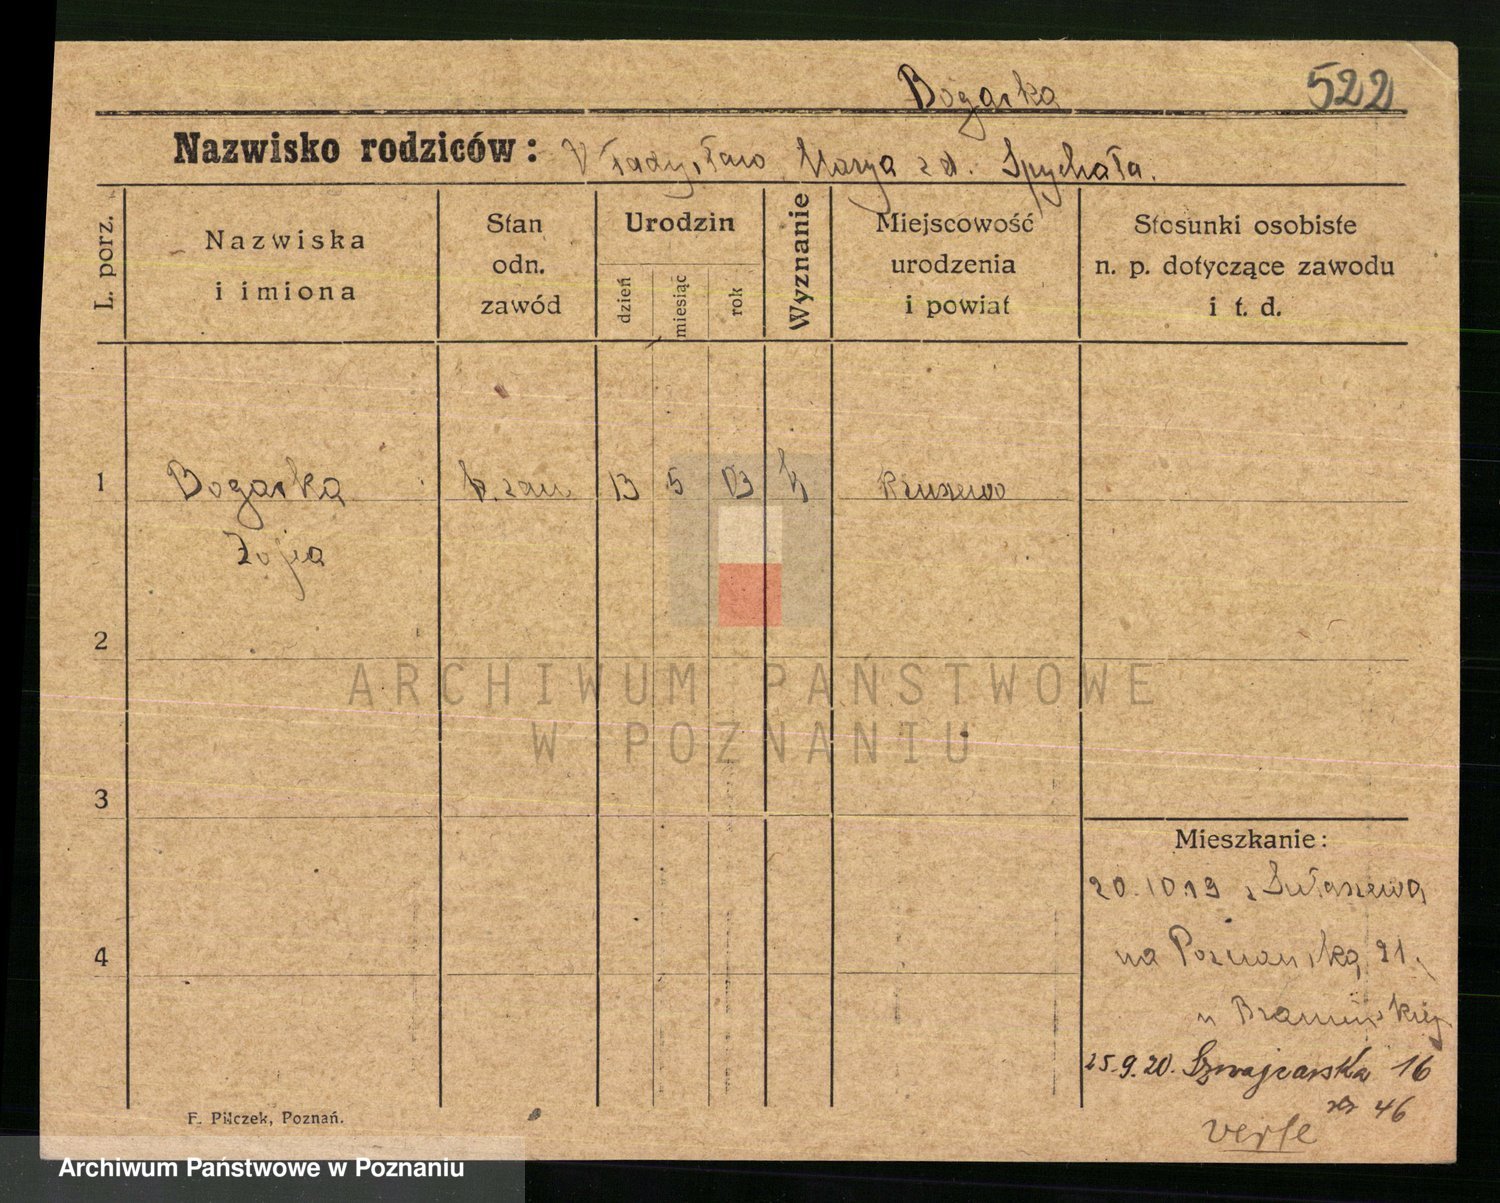 Bogarka 522
Nazwisko rodziców: Władysław Marya zd. Spychała.
L. porz.
Nazwiska
i imiona
Stan
odn.
zawód
Urodzin
dzień
miesiąc
rok
Wyznanie
Miejscowość
urodzenia
i powiat
Stosunki osobiste
n. p. dotyczące zawodu
i t. d.
1 Bogarka 13 5 03 k
Zofja
2
3
4
ARCHIWUM PAŃSTWOWE
W POZNANIU
Mieszkanie:
20.10 19 z
na Poznańską 21.
u
25.9.20. Szwajcarska 16
46
verte
F. Pilczek, Poznań.
Archiwum Państwowe w Poznaniu